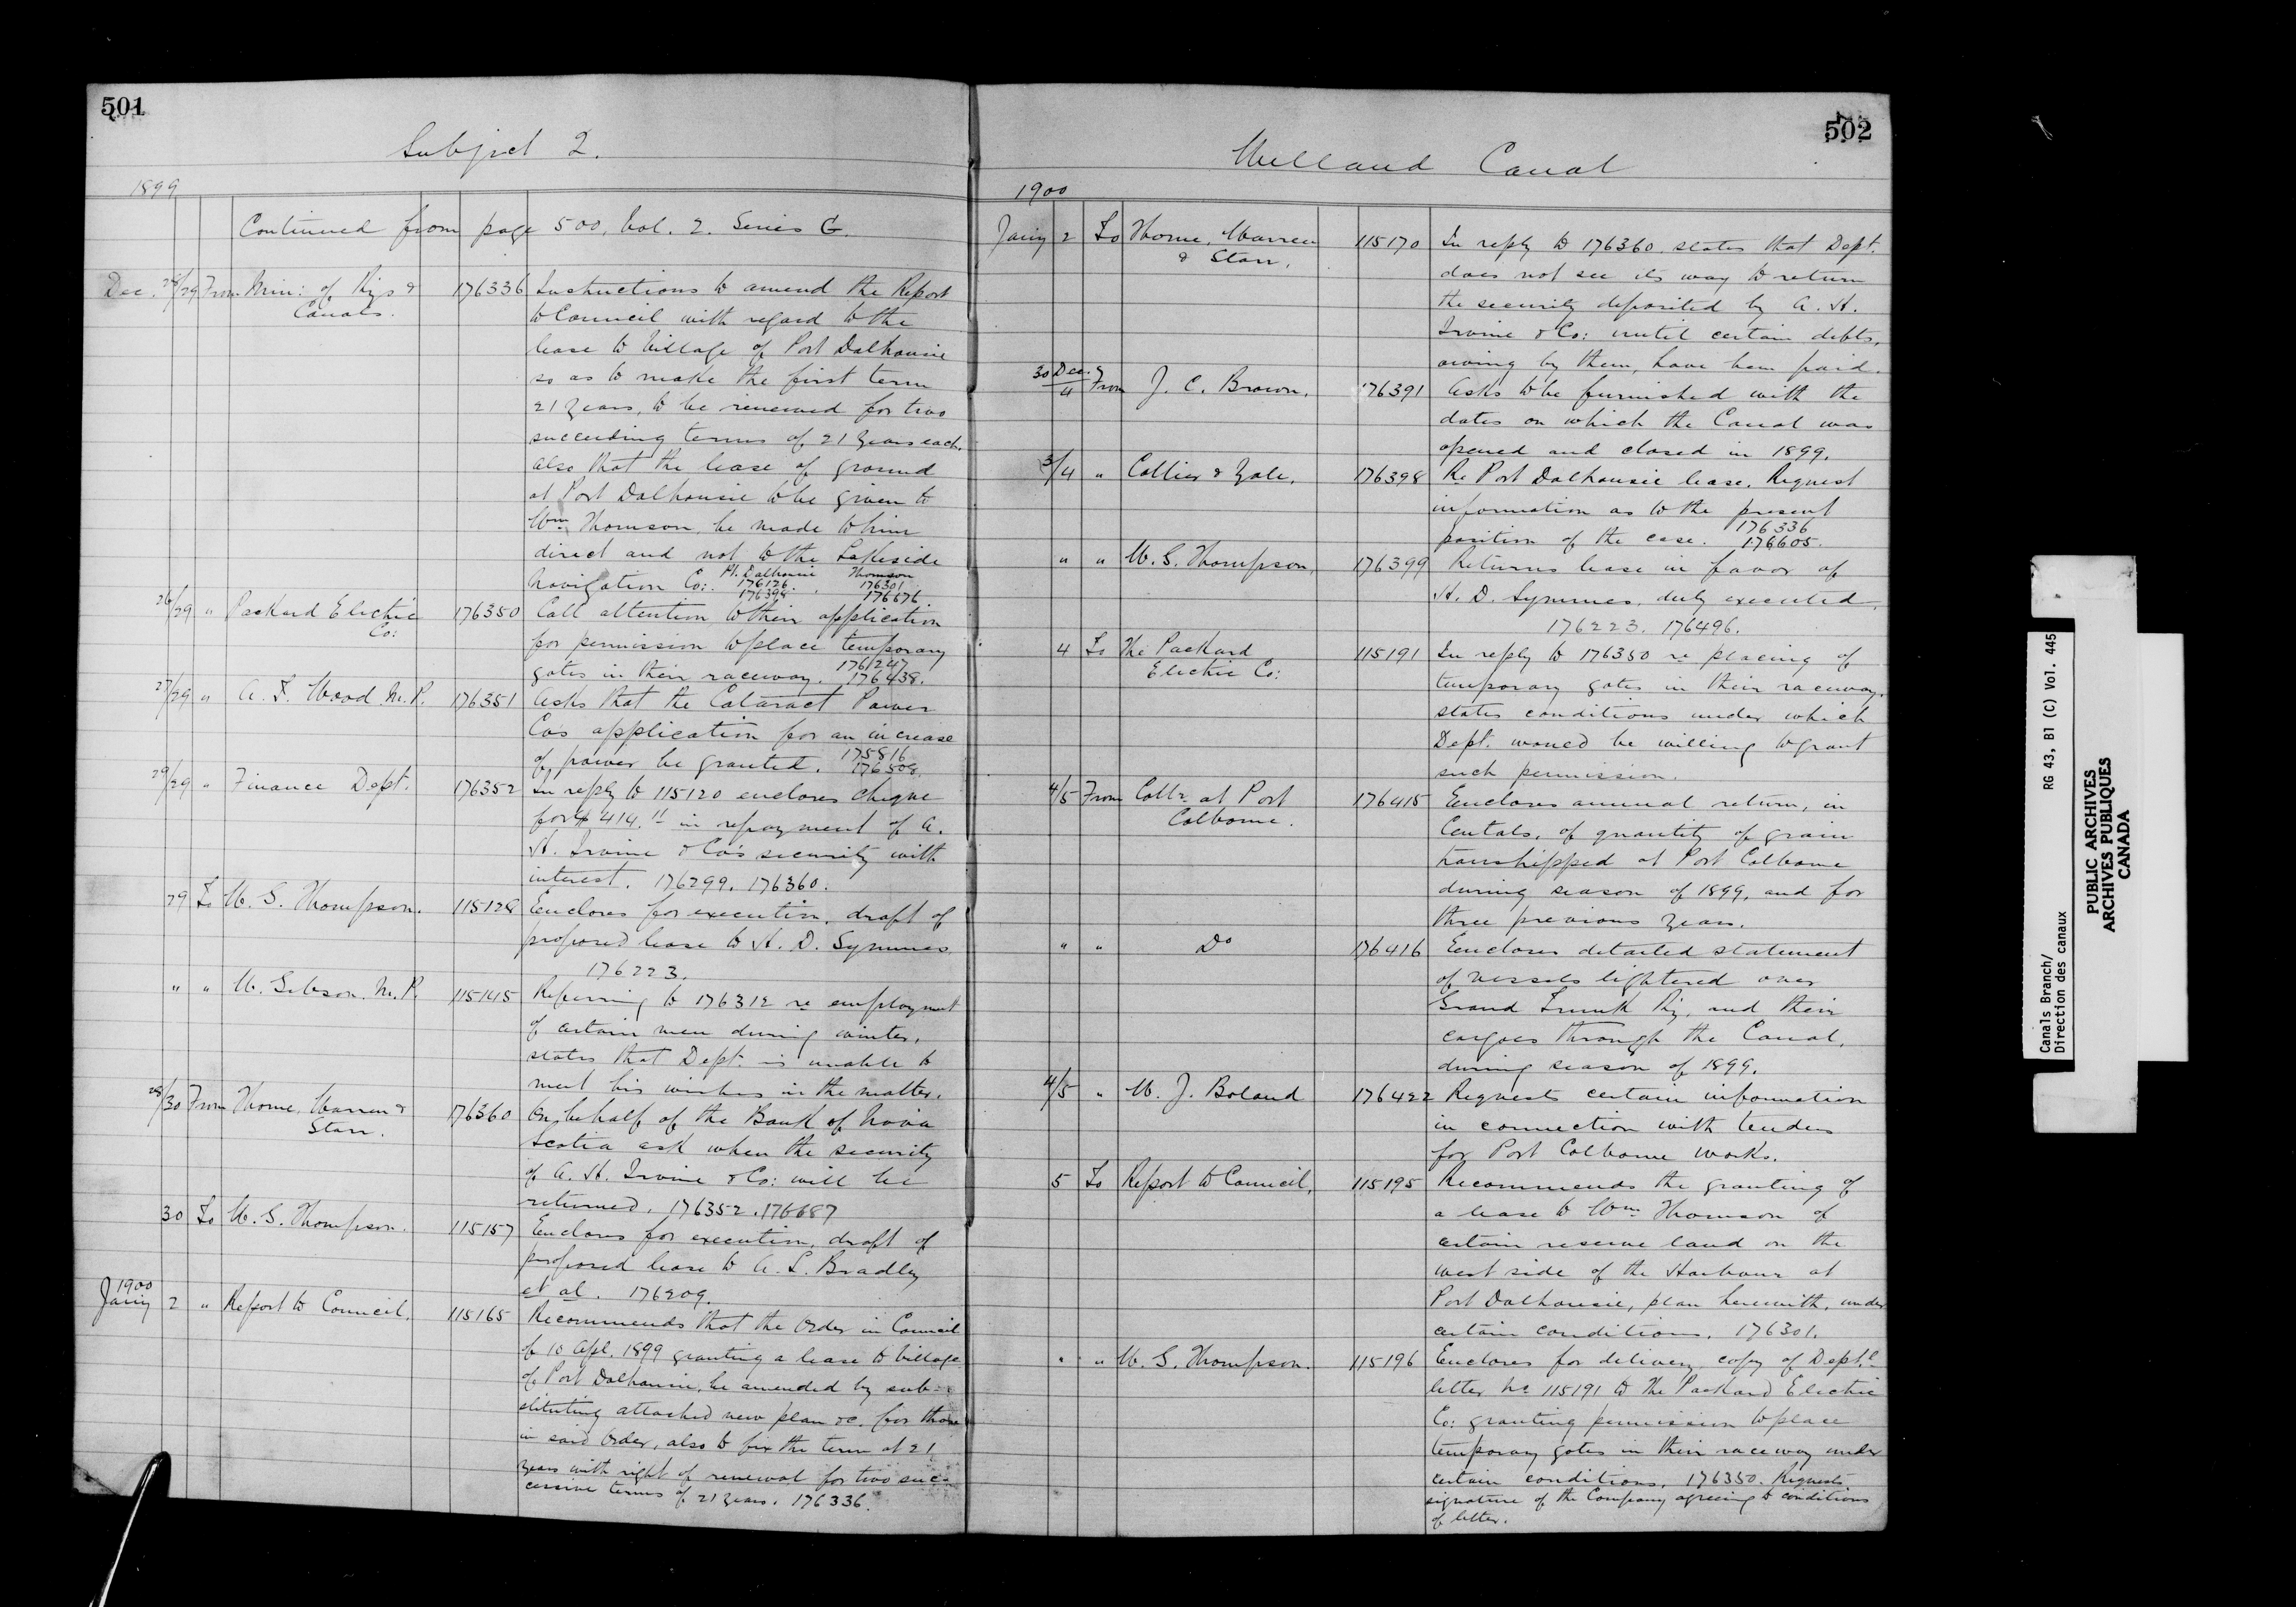 501
Subject 2.
1899
Continued from page 500, Vol. 2. Series G.
Dec. 28/29 From Min: of Rys & Canals. 176336 Instructions to amend the Report
to Council with regard to the
lease to Village of Port Dalhousie
so as to make the first term
21 years, to be renewed for two
succeeding terms of 21 years each.
also that the lease of ground
at Port Dalhousie to be given to
Wm. Thomson be made to him
direct and not to the Lakeside
Navigation Co: Pt. Dalhousie 176126 176398. Thomson 176301 176676
26/29 " Packard Electric Co: 176350 Call attention to their application
for permission to place temporary
gates in their raceway. 176247 176438.
27/29 " A. T. Wood M.P. 176351 Asks that the Cataract Power
Co's application for an increase
of power be granted. 175816 176508.
29/29 " Finance Dept. 176352 In reply to 115120 encloses cheque
for $414.11 in repayment of A.
H. Irvine & Co's security with
interest. 176299. 176360.
29 To W. G. Thompson. 115128 Encloses for execution, draft of
proposed lease to H. D. Symmes
176223.
" " W. Gibson. M.P. 115145 Referring to 176312 re employment
of certain men during winter,
states that Dept. is unable to
meet his wishes in the matter.
28/30 From Thorne, Warren & Starr. 176360 On behalf of the Bank of Nova
Scotia ask when the security
of A. H. Irvine & Co: will be
returned. 176352. 176687
30 To W. G. Thompson. 115157 Encloses for execution, draft of
proposed lease to A. L. Bradley
et al. 176209.
1900
Jany 2 " Report to Council. 115165 Recommends that the Order in Council
of 10 Apl. 1899 granting a lease to Village
of Port Dalhousie, be amended by sub-
stituting attached new plan &c. for those
in said Order, also to fix the term at 21
years with right of renewal for two suc-
cessive terms of 21 years. 176336.
502
Welland Canal
1900
Jany 2 To Thorne, Warren & Starr. 115170 In reply to 176360 states that Dept.
does not see its way to return
the security deposited by A. H.
Irvine & Co: until certain debts,
owing by them, have been paid.
30 Dec./4 From J. C. Brown. 176391 Asks to be furnished with the
dates on which the Canal was
opened and closed in 1899.
3/4 " Collier & Yale. 176398 Re Port Dalhousie lease. Request
information as to the present
position of the case. 176336 176605.
" " W. G. Thompson. 176399 Returns lease in favor of
H. D. Symmes, duly executed.
176223. 176496.
4 To The Packard Electric Co: 115191 In reply to 176350 re placing of
temporary gates in their raceway,
states conditions under which
Dept. would be willing to grant
such permission.
4/5 From Collr. at Port Colborne. 176415 Encloses annual return, in
Centals, of quantity of grain
transhipped at Port Colborne
during season of 1899, and for
three previous years.
" " Do 176416 Encloses detailed statement
of vessels lightered over
Grand Trunk Ry, and their
cargoes through the Canal,
during season of 1899.
4/5 " W. J. Boland 176422 Requests certain information
in connection with tenders
for Port Colborne works.
5 To Report to Council. 115195 Recommends the granting of
a lease to Wm. Thomson of
certain reserve land on the
west side of the Harbour at
Port Dalhousie, plan herewith, under
certain conditions. 176301.
" " W. G. Thompson. 115196 Encloses for delivery, copy of Deptl.
letter No 115191 to The Packard Electric
Co: granting permission to place
temporary gates in their raceway under
certain conditions. 176350. Requests
signature of the Company agreeing to conditions
of letter.
Canals Branch/ RG 43, B1 (C) Vol. 445
Direction des canaux
PUBLIC ARCHIVES
ARCHIVES PUBLIQUES
CANADA